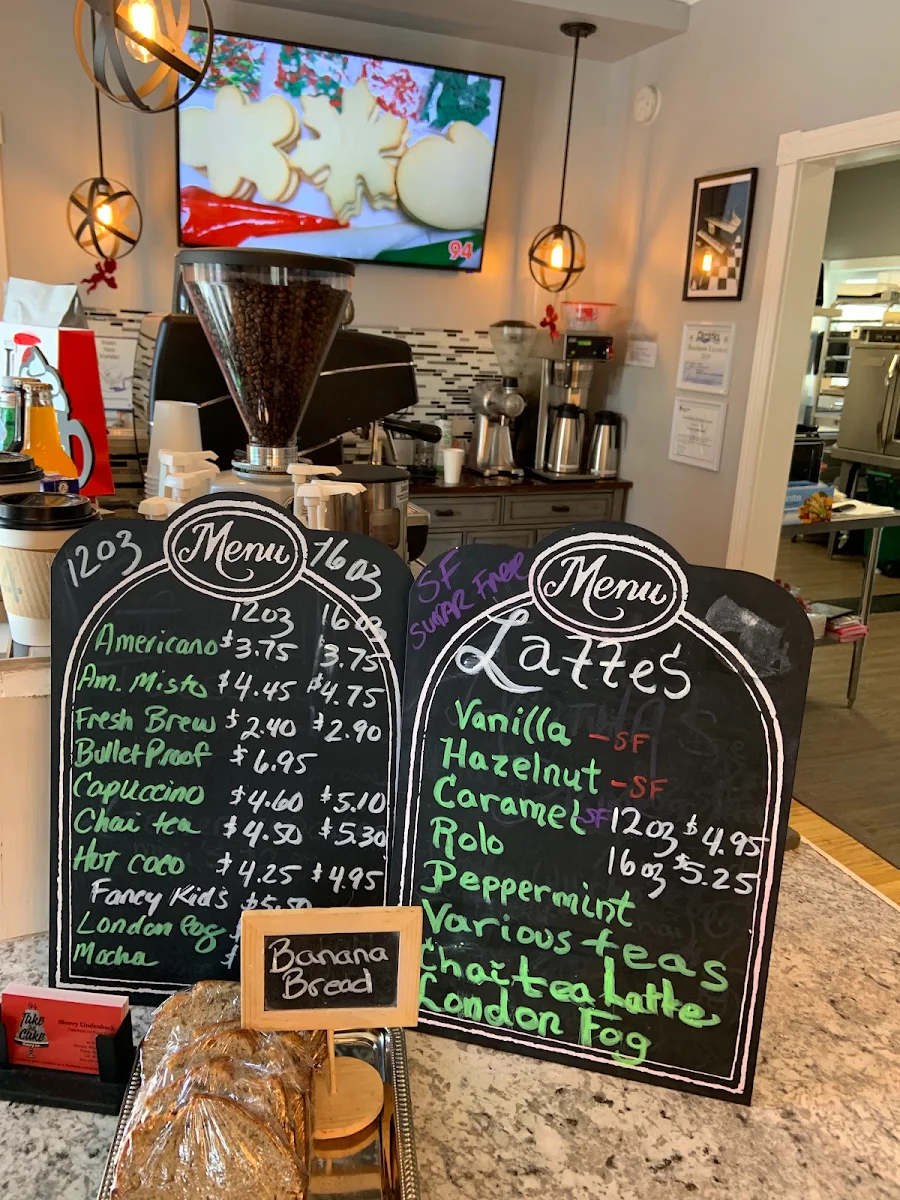 94
Business License
12oz
Menu
16oz
12oz 16oz
Americano $3.75 $3.75
Am. Misto $4.45 $4.75
Fresh Brew $2.40 $2.90
BulletProof $6.95
Capuccino $4.60 $5.10
Chai tea $4.50 $5.30
Hot coco $4.25 $4.95
Fancy Kid's $5.50
London Fog $
Mocha $
SF
SUGAR FREE
Menu
Lattes
Vanilla -SF
Hazelnut -SF
Caramel SF 12oz $4.95
Rolo 16oz $5.25
Peppermint
Various teas
Chai tea Latte
London Fog
Banana
Bread
Take
the
Cake
Sherry Lindenbach